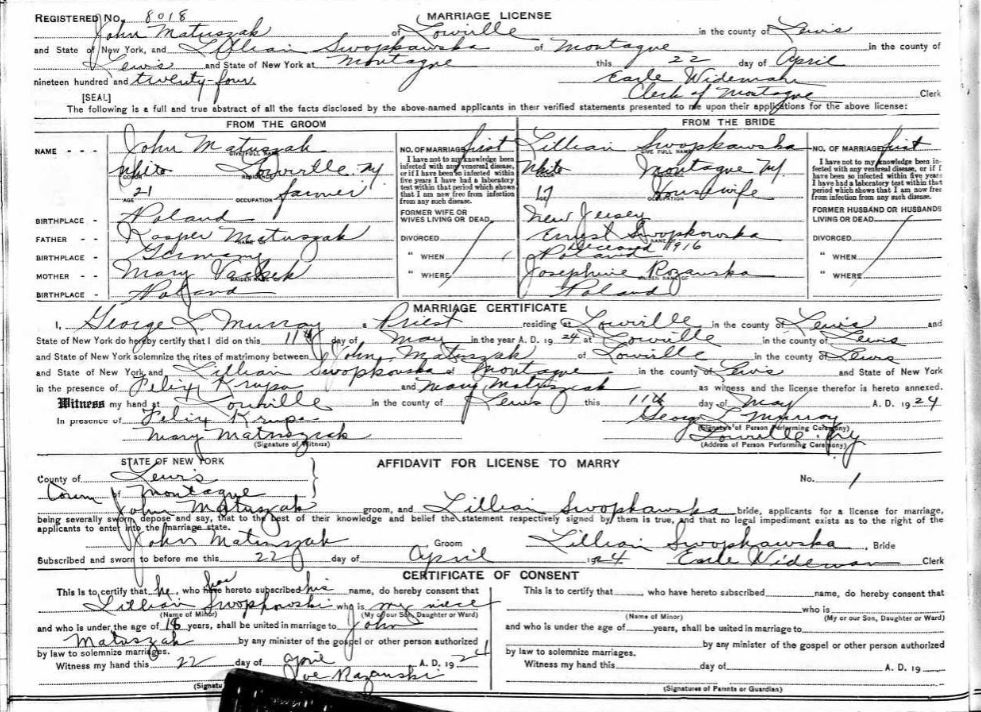 REGISTERED No. 8018 MARRIAGE LICENSE
John Matuszak of Lowville in the county of Lewis
and State of New York, and Lillian Swopkawska of Montague in the county of
Lewis and State of New York at Montague this 22 day of April
nineteen hundred and twenty-four Earle Wideman
[SEAL] Clerk of Montague Clerk
The following is a full and true abstract of all the facts disclosed by the above-named applicants in their verified statements presented to me upon their applications for the above license:
FROM THE GROOM FROM THE BRIDE
NAME - - - John Matuszak NO. OF MARRIAGE first Lillian Swopkawska NO. OF MARRIAGE first
White Lowville NY I have not to my knowledge been infected with any venereal disease, or if I have been so infected within five years I have had a laboratory test within that period which shows that I am now free from infection from any such disease. White Montague NY I have not to my knowledge been infected with any venereal disease, or if I have been so infected within five years I have had a laboratory test within that period which shows that I am now free from infection from any such disease.
21 farmer 17 Housewife
AGE OCCUPATION OCCUPATION
BIRTHPLACE - - Poland FORMER WIFE OR WIVES LIVING OR DEAD New Jersey FORMER HUSBAND OR HUSBANDS LIVING OR DEAD
FATHER - - Kasper Matuszak DIVORCED Ernest Swopkowska DIVORCED
deceased 1916
BIRTHPLACE - - Germany " WHEN Poland " WHEN
MOTHER - - Mary " WHERE Josephine Rozawska " WHERE
BIRTHPLACE - Poland Poland
MARRIAGE CERTIFICATE
I, George L. Murray a Priest residing at Lowville in the county of Lewis and
State of New York do hereby certify that I did on this 11th day of May in the year A. D. 1924 at Lowville in the county of Lewis
and State of New York solemnize the rites of matrimony between John Matuszak of Lowville in the county of Lewis
and State of New York and Lillian Swopkowska of Montague in the county of Lewis and State of New York
in the presence of Felix Krupa and Mary Matuszak as witness and the license therefor is hereto annexed.
Witness my hand at Lowville in the county of Lewis this 11th day of May A. D. 1924
In presence of Felix Krupa George L Murray
(Signature of Person Performing Ceremony)
Mary Matuszak Lowville NY
(Signature of Witness) (Address of Person Performing Ceremony)
STATE OF NEW YORK AFFIDAVIT FOR LICENSE TO MARRY
County of Lewis No. 1
Town of Montague
John Matuszak groom, and Lillian Swopkawska bride, applicants for a license for marriage,
being severally sworn, depose and say, that to the best of their knowledge and belief the statement respectively signed by them is true, and that no legal impediment exists as to the right of the
applicants to enter into the marriage state.
John Matuszak Groom Lillian Swopkawska, Bride
Subscribed and sworn to before me this 22 day of April 1924 Earle Wideman Clerk
CERTIFICATE OF CONSENT
This is to certify that he, who have has hereto subscribed his name, do hereby consent that This is to certify that who have hereto subscribed name, do hereby consent that
Lillian Swopkowski who is my niece who is
(Name of Minor) (My or our Son, Daughter or Ward) (Name of Minor) (My or our Son, Daughter or Ward)
and who is under the age of 18 years, shall be united in marriage to John and who is under the age of years, shall be united in marriage to
Matuszak by any minister of the gospel or other person authorized by any minister of the gospel or other person authorized
by law to solemnize marriages. by law to solemnize marriages.
Witness my hand this 22 day of April A. D. 1924 Witness my hand this day of A. D. 19
Joe Razanski
(Signatu (Signatures of Parents or Guardian)